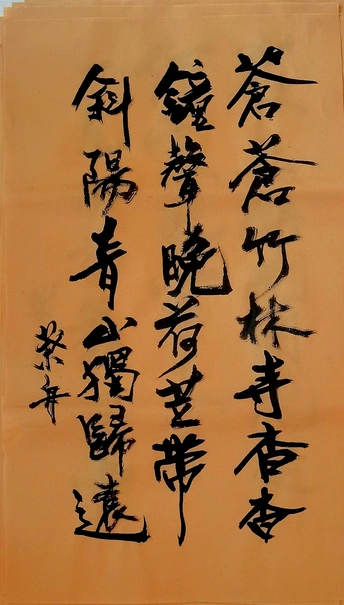 蒼蒼竹林寺杳杳
鐘聲晚荷笠帶
斜陽青山獨歸遠
舟